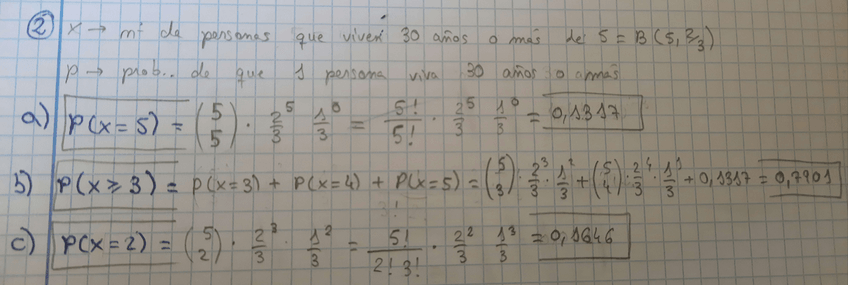 ② x → nº de personas que viven 30 años o más de 5 = B(5, 2/3)
p → prob. de que 1 persona viva 30 años o más
a) P(x = 5) = (5 5) · 2/3^5 1/3^0 = 5!/5! · 2/3^5 1/3^0 = 0,1317
b) P(x ≥ 3) = P(x=3) + P(x=4) + P(x=5) = (5 3) · 2/3^3 · 1/3^2 + (5 4) · 2/3^4 · 1/3^1 + 0,1317 = 0,7901
c) P(x=2) = (5 2) · 2/3^3 · 1/3^2 = 5!/2! 3! · 2/3^2 1/3^3 = 0,1646